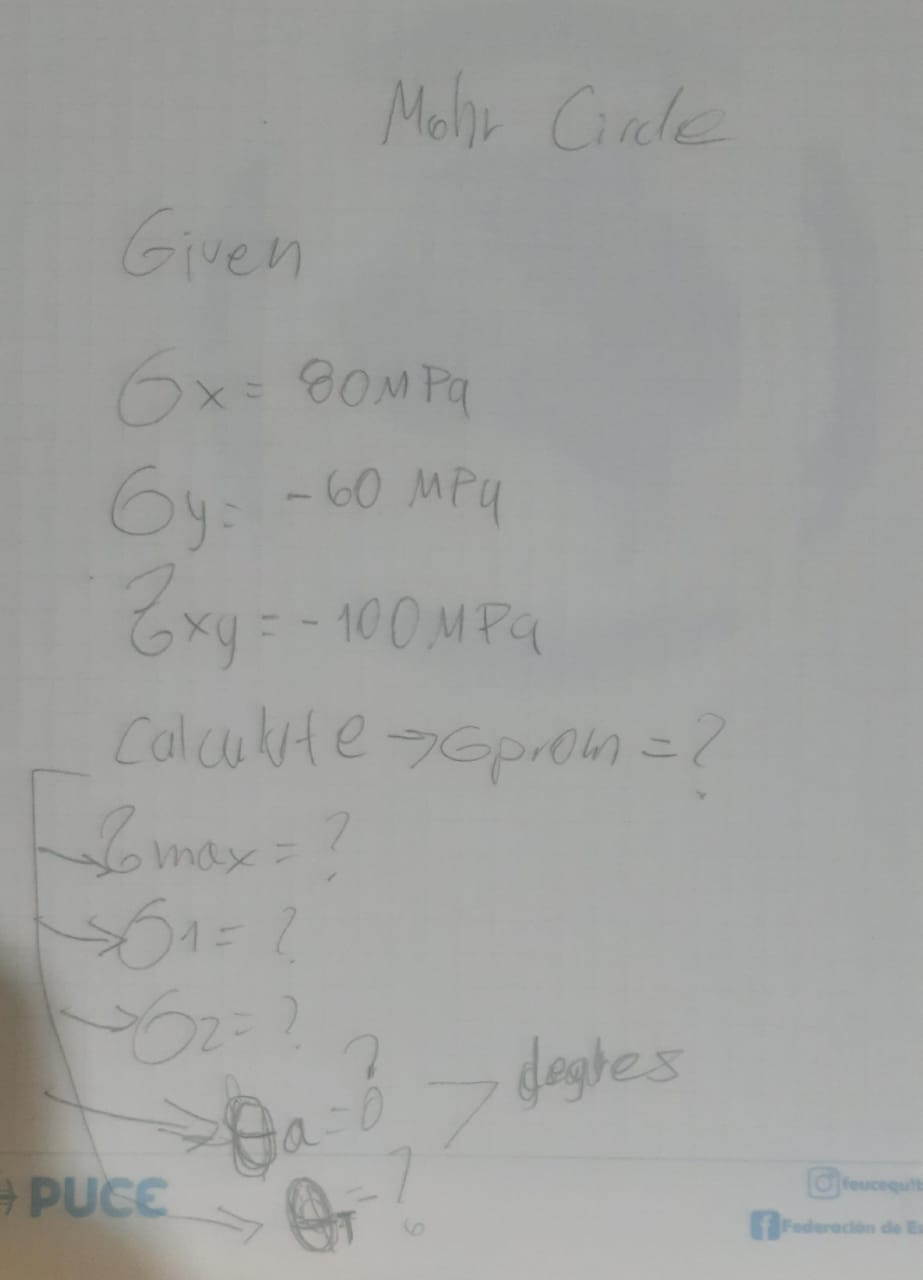 Mohr Circle
Given
σx = 80 MPa
σy = -60 MPa
τxy = -100 MPa
Calculate → σprom = ?
τmax = ?
σ1 = ?
σ2 = ?
θa = ?
degres
θT = ?
PUCE
feucequit
Federación de Es